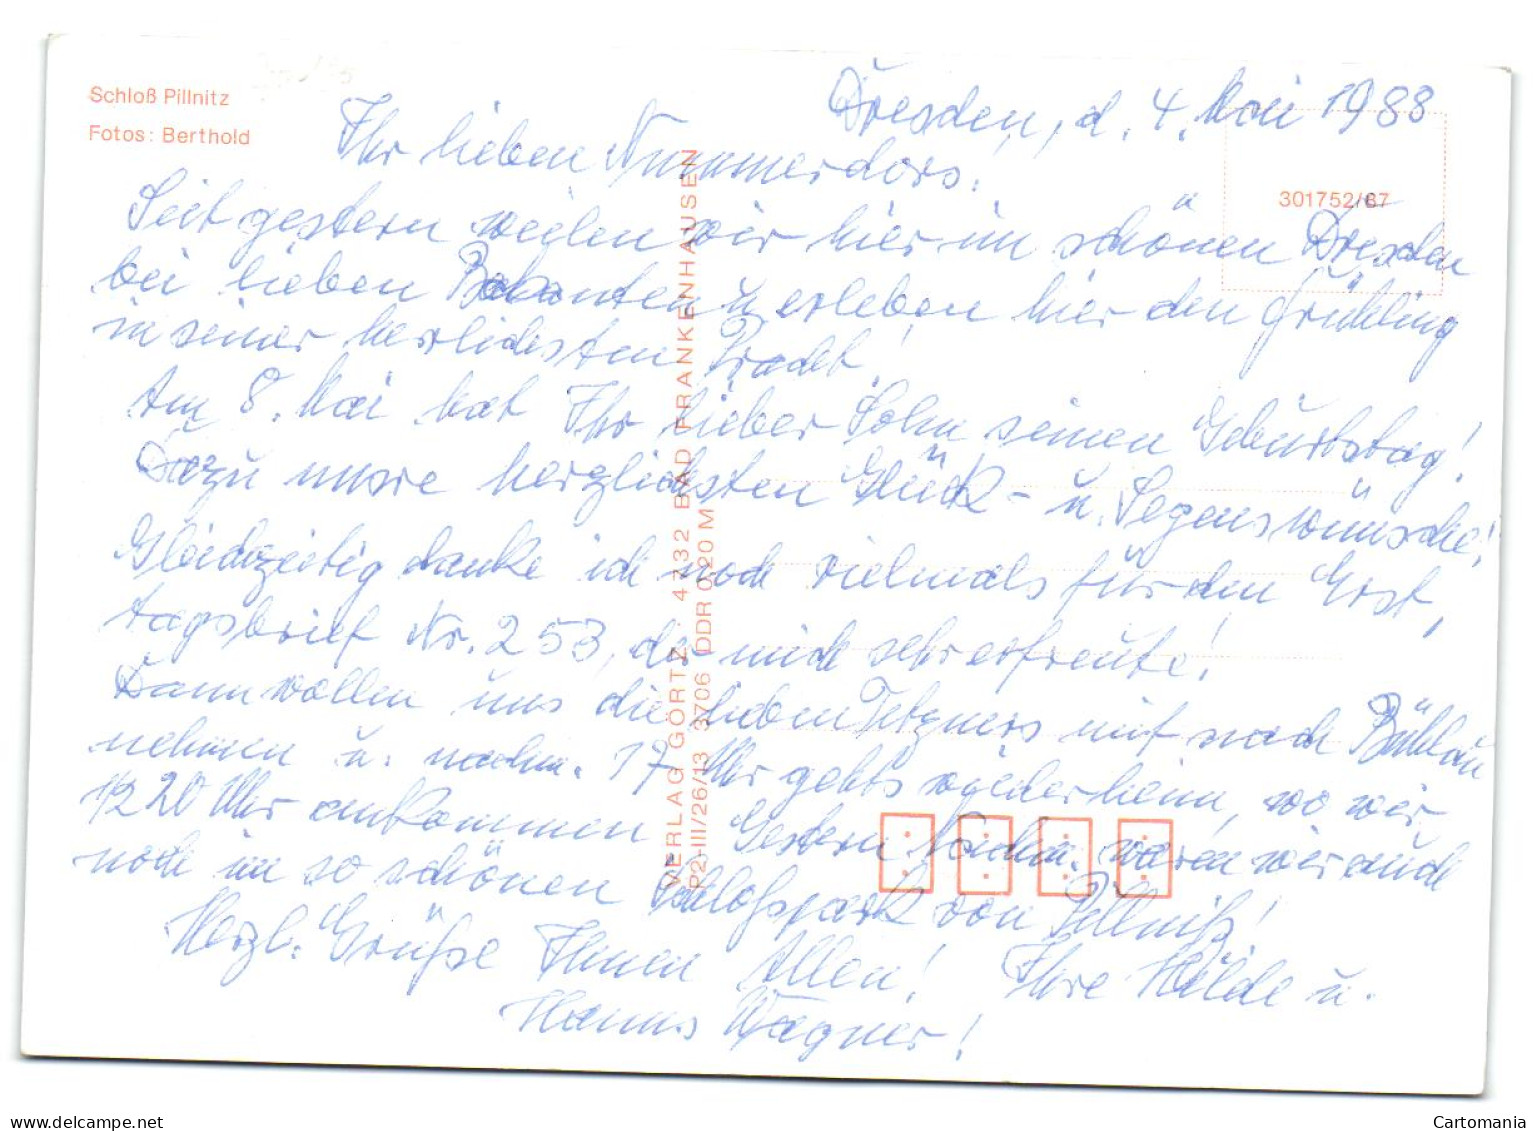 Schloß Pillnitz
Fotos: Berthold
301752/87
Dresden, d. 4. Mai 1988
Ihr lieben Nummerdors.
Seit gestern weilen wir hier im schönen Dresden
bei lieben Bekannten u erleben hier den Frühling
in seiner herrlichsten Pracht!
Am 8. Mai hat Ihr lieber Sohn seinen Geburtstag!
Dazu unsre herzlichsten Glück- u. Segenswünsche!
Gleichzeitig danke ich noch vielmals für den Erst,
tagsbrief Nr. 253, der mich sehr erfreute!
Dann wollen uns die lieben Tetzners mit nach Bühlau
nehmen u. nachm. 17 Uhr gehts wieder heim, wo wir
1/2 20 Uhr ankommen. Gestern Nachm. waren wir auch
noch im so schönen Schloßpark von Pillnitz!
Herzl. Grüße Ihnen Allen! Ihre Hilde u.
Hanns Wagner!
VERLAG GÖRTZ · 4732 BAD FRANKENHAUSEN
P2-III/26/13 3706 DDR 0,20 M
www.delcampe.net
Cartomania